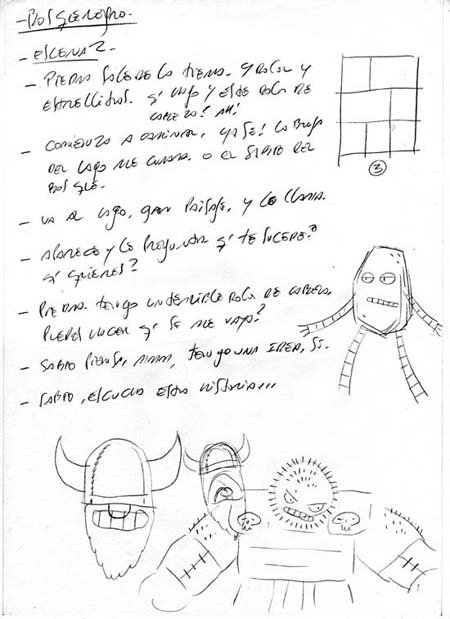 - BOSQUENEGRO.
- ESCENA 2.
- PIEDRA SALE DE LA TIERRA. Y DOLOR Y
ESTRELLITAS. q' HAGO Y ESTE DOLOR DE
CABEZA! AH!
- COMIENZA A CAMINAR, YA SE! LA BRUJA
DEL LAGO ME CURARA. O EL SABIO DEL
BOSQUE.
- VA AL LAGO, GRAN PAISAJE, Y LO LLAMA.
- APARECE Y LE PREGUNTA q' TE SUCEDE?
q' QUIERES?
- PIEDRA. TENGO UN TERRIBLE DOLOR DE CABEZA,
PUEDES HACER q' SE ME VAYA?
- SABIO PIENSA, MMM, TENGO UNA IDEA, SI.
- SABIO, ESCUCHA ESTA HISTORIA...
3